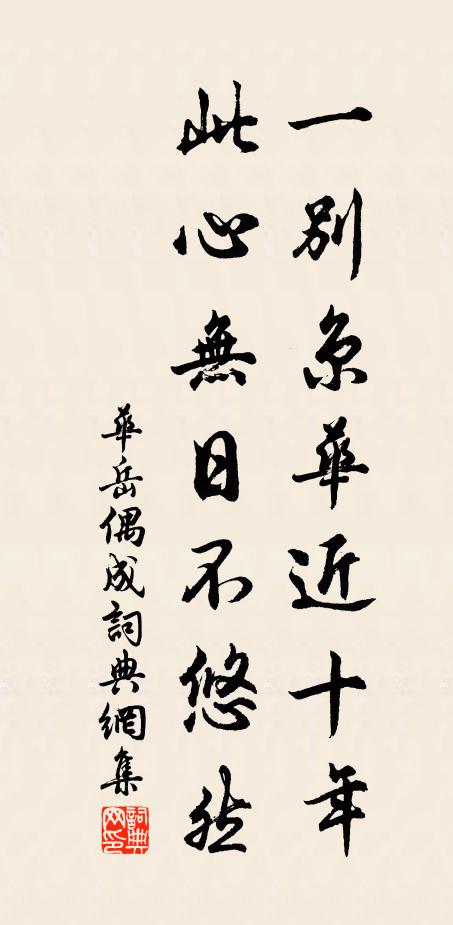 一別京華近十年
此心無日不悠然
華岳偶成詞典網集
詞典網印